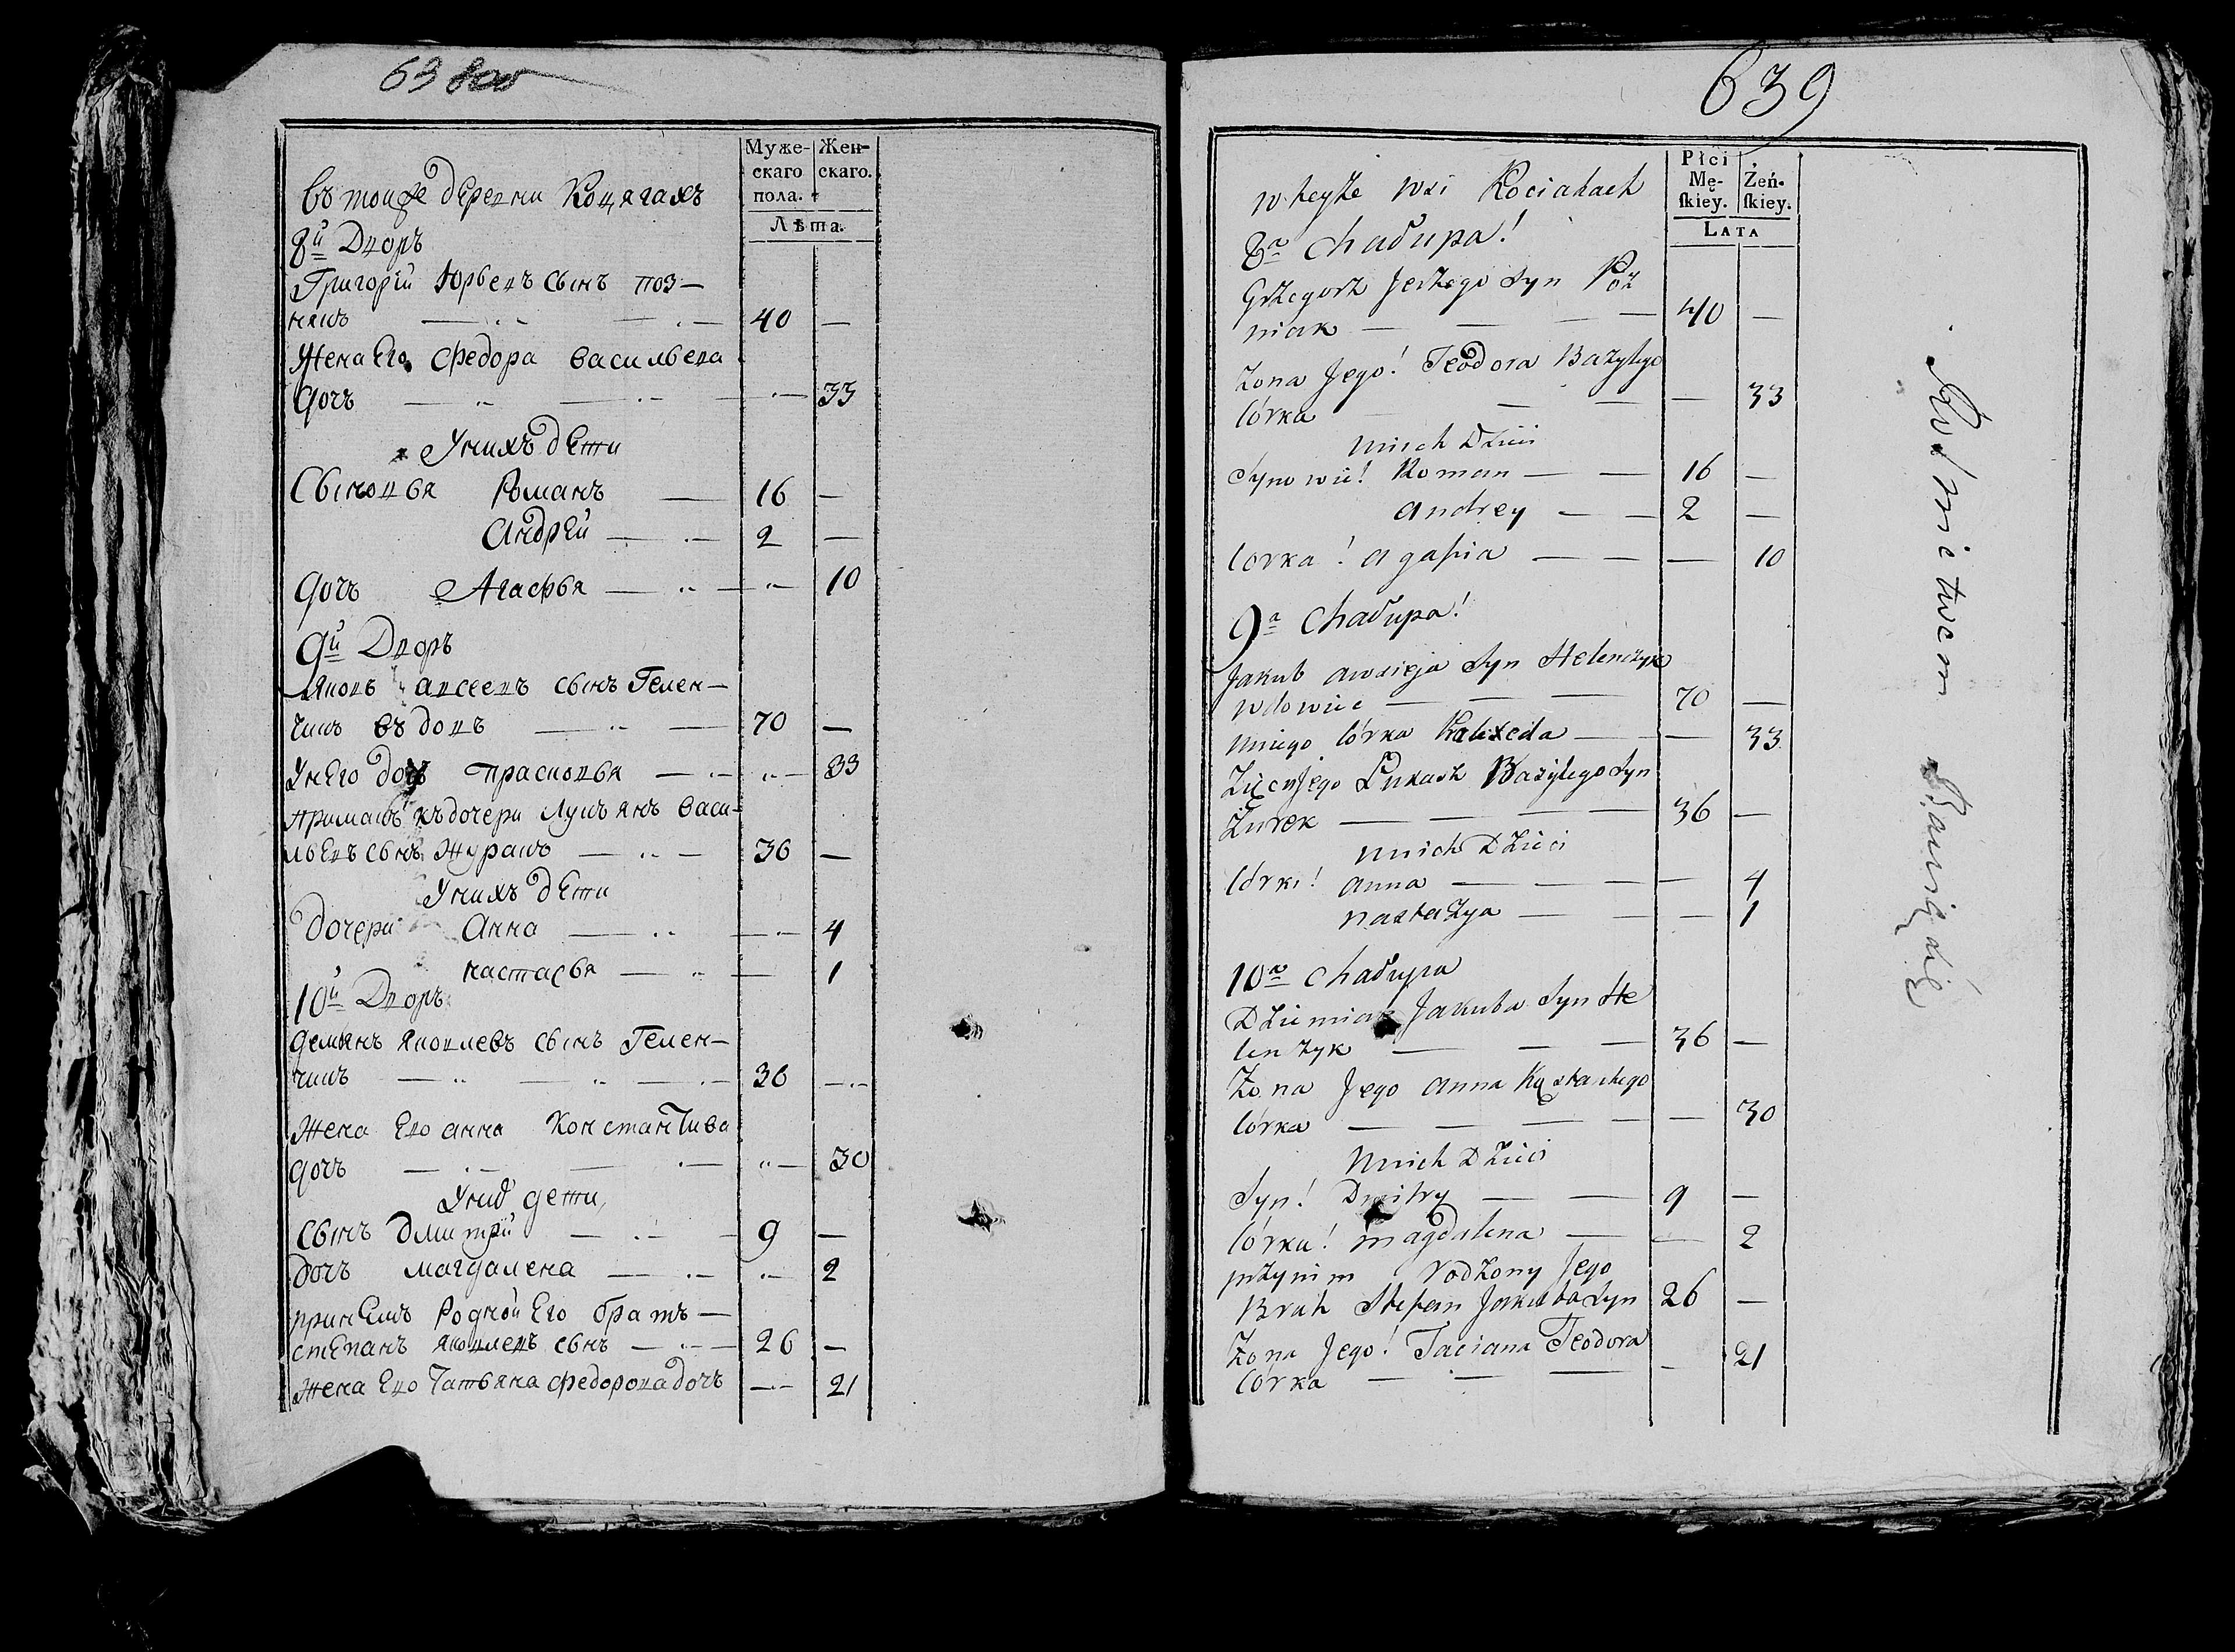 638 об
Муже-
скаго
пола.
Жен-
скаго.
Лѣта.
въ тоиже деревни Коцягахъ
8й Дворъ
Григорїй Юрьевъ сынъ Поз-
някъ — — 40 —
Жена Его Федора Васильева
дочь — — — 33
У нихъ дети
Сыновья Романъ — 16 —
Андрей — 2 —
дочь Агафья — — 10
9й Дворъ
Яковъ Авсеевъ сынъ Гелен-
чикъ вдовъ — 70 —
У него дочь Прасковья — — 33
примакъ къ дочери Лукьянъ Васи-
льевъ сынъ Журакъ — 36 —
У нихъ дети
дочери Анна — — 4
Настасья — — 1
10й Дворъ
Демянъ Яковлевъ сынъ Гелен-
чикъ — — — 36 —
Жена Его Анна Константива
дочь — — — 30
У них дети
сынъ Дмитрїй — 9 —
дочь Магдалена — — 2
при нем Родной Его братъ —
Степанъ Яковлевъ сынъ — 26 —
Жена Его Татьяна Федорова дочь — 21
639
Płci
Mę-
skiey.
Żeń-
skiey.
LATA
w teyże wsi Kociahach
8a Chałupa!
Grzegorz Jerzego Syn Poz
niak — — — 40 —
Zona Jego! Teodora Bazylego
Córka — — — 33
Unich Dzieci
Synowie! Roman — — 16 —
Andrey — — 2 —
Corka! Agapia — — — 10
9a Chałupa!
Jakub Awsieja Syn Helenczyk
wdowiec — — 70 —
Uniego Córka — — 33
Zięć Jego Łukasz Bazylego Syn
Żurek — — — 36 —
Unich Dzieci
Córki! Anna — — — 4
Nastazya — — 1
10a Chałupa
Dziemian Jakuba Syn He
lenzyk — — — 36 —
Zona Jego Anna Kąstantego
Córka — — — — 30
Unich Dzieci
Syn! Dmitry — — 9 —
Córka! Magdalena — — 2
przynim rodzony Jego
Brat Stefan Jakuba Syn 26 —
Zona Jego! Taciana Teodora
Córka — — — — 21